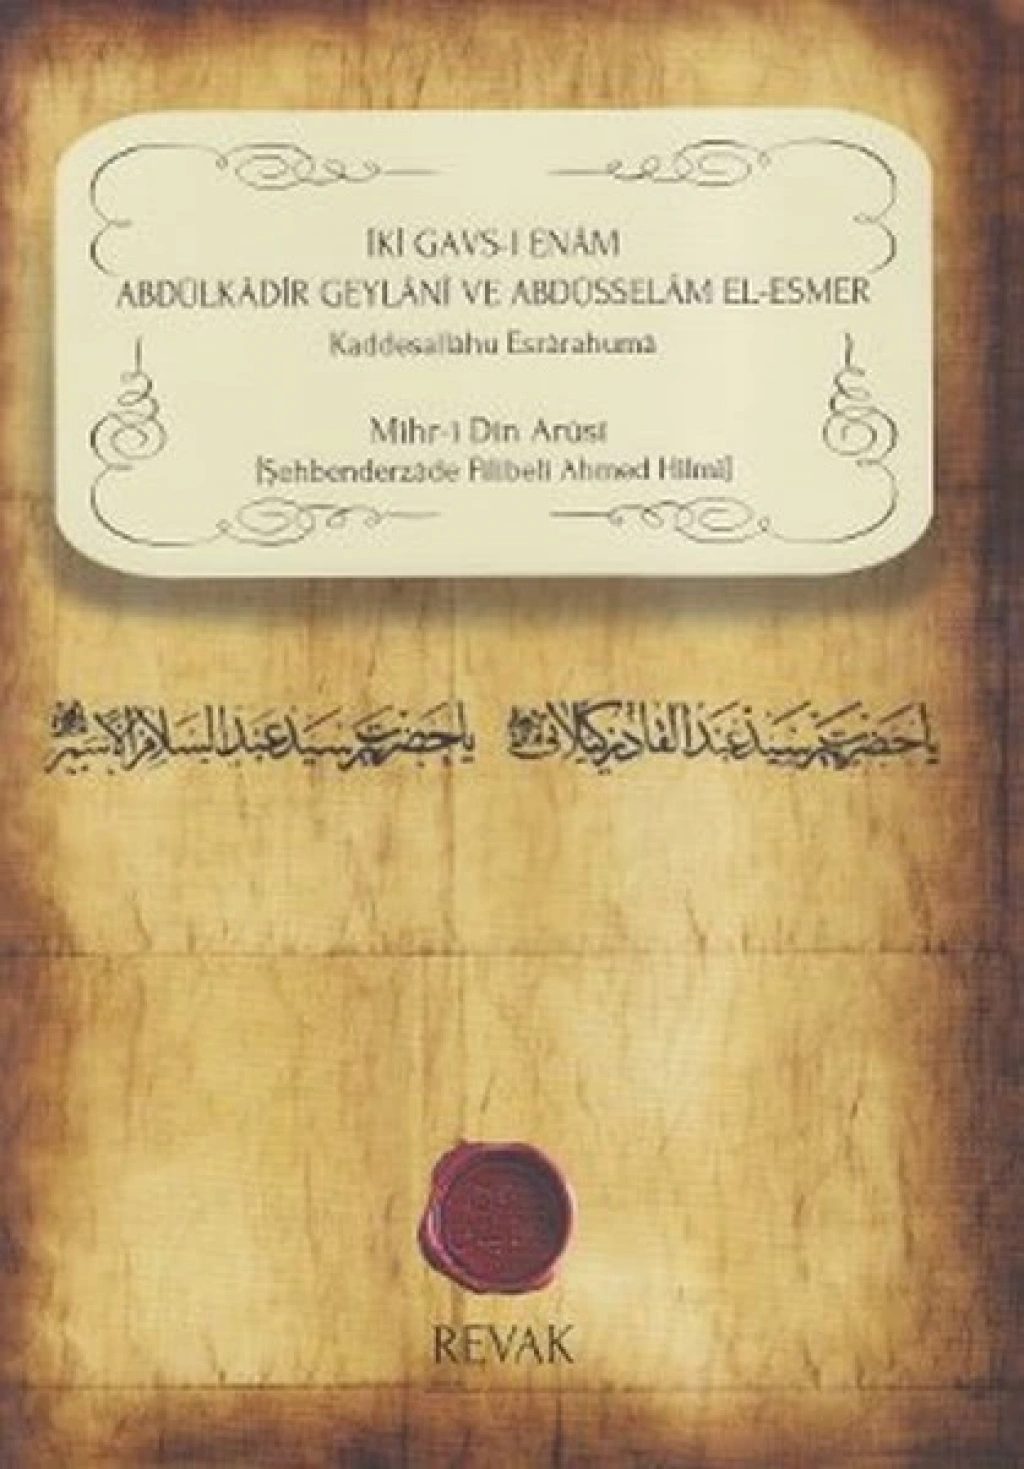 İKİ GAVS-I ENÂM
ABDÜLKÂDİR GEYLÂNÎ VE ABDÜSSELÂM EL-ESMER
Kaddesallâhu Esrârahumâ
Mihr-i Din Arûsî
[Şehbenderzâde Filibeli Ahmed Hilmi]
يا حضرت سيد عبد القادر كيلاني
يا حضرت سيد عبد السلام الأسمر
REVAK